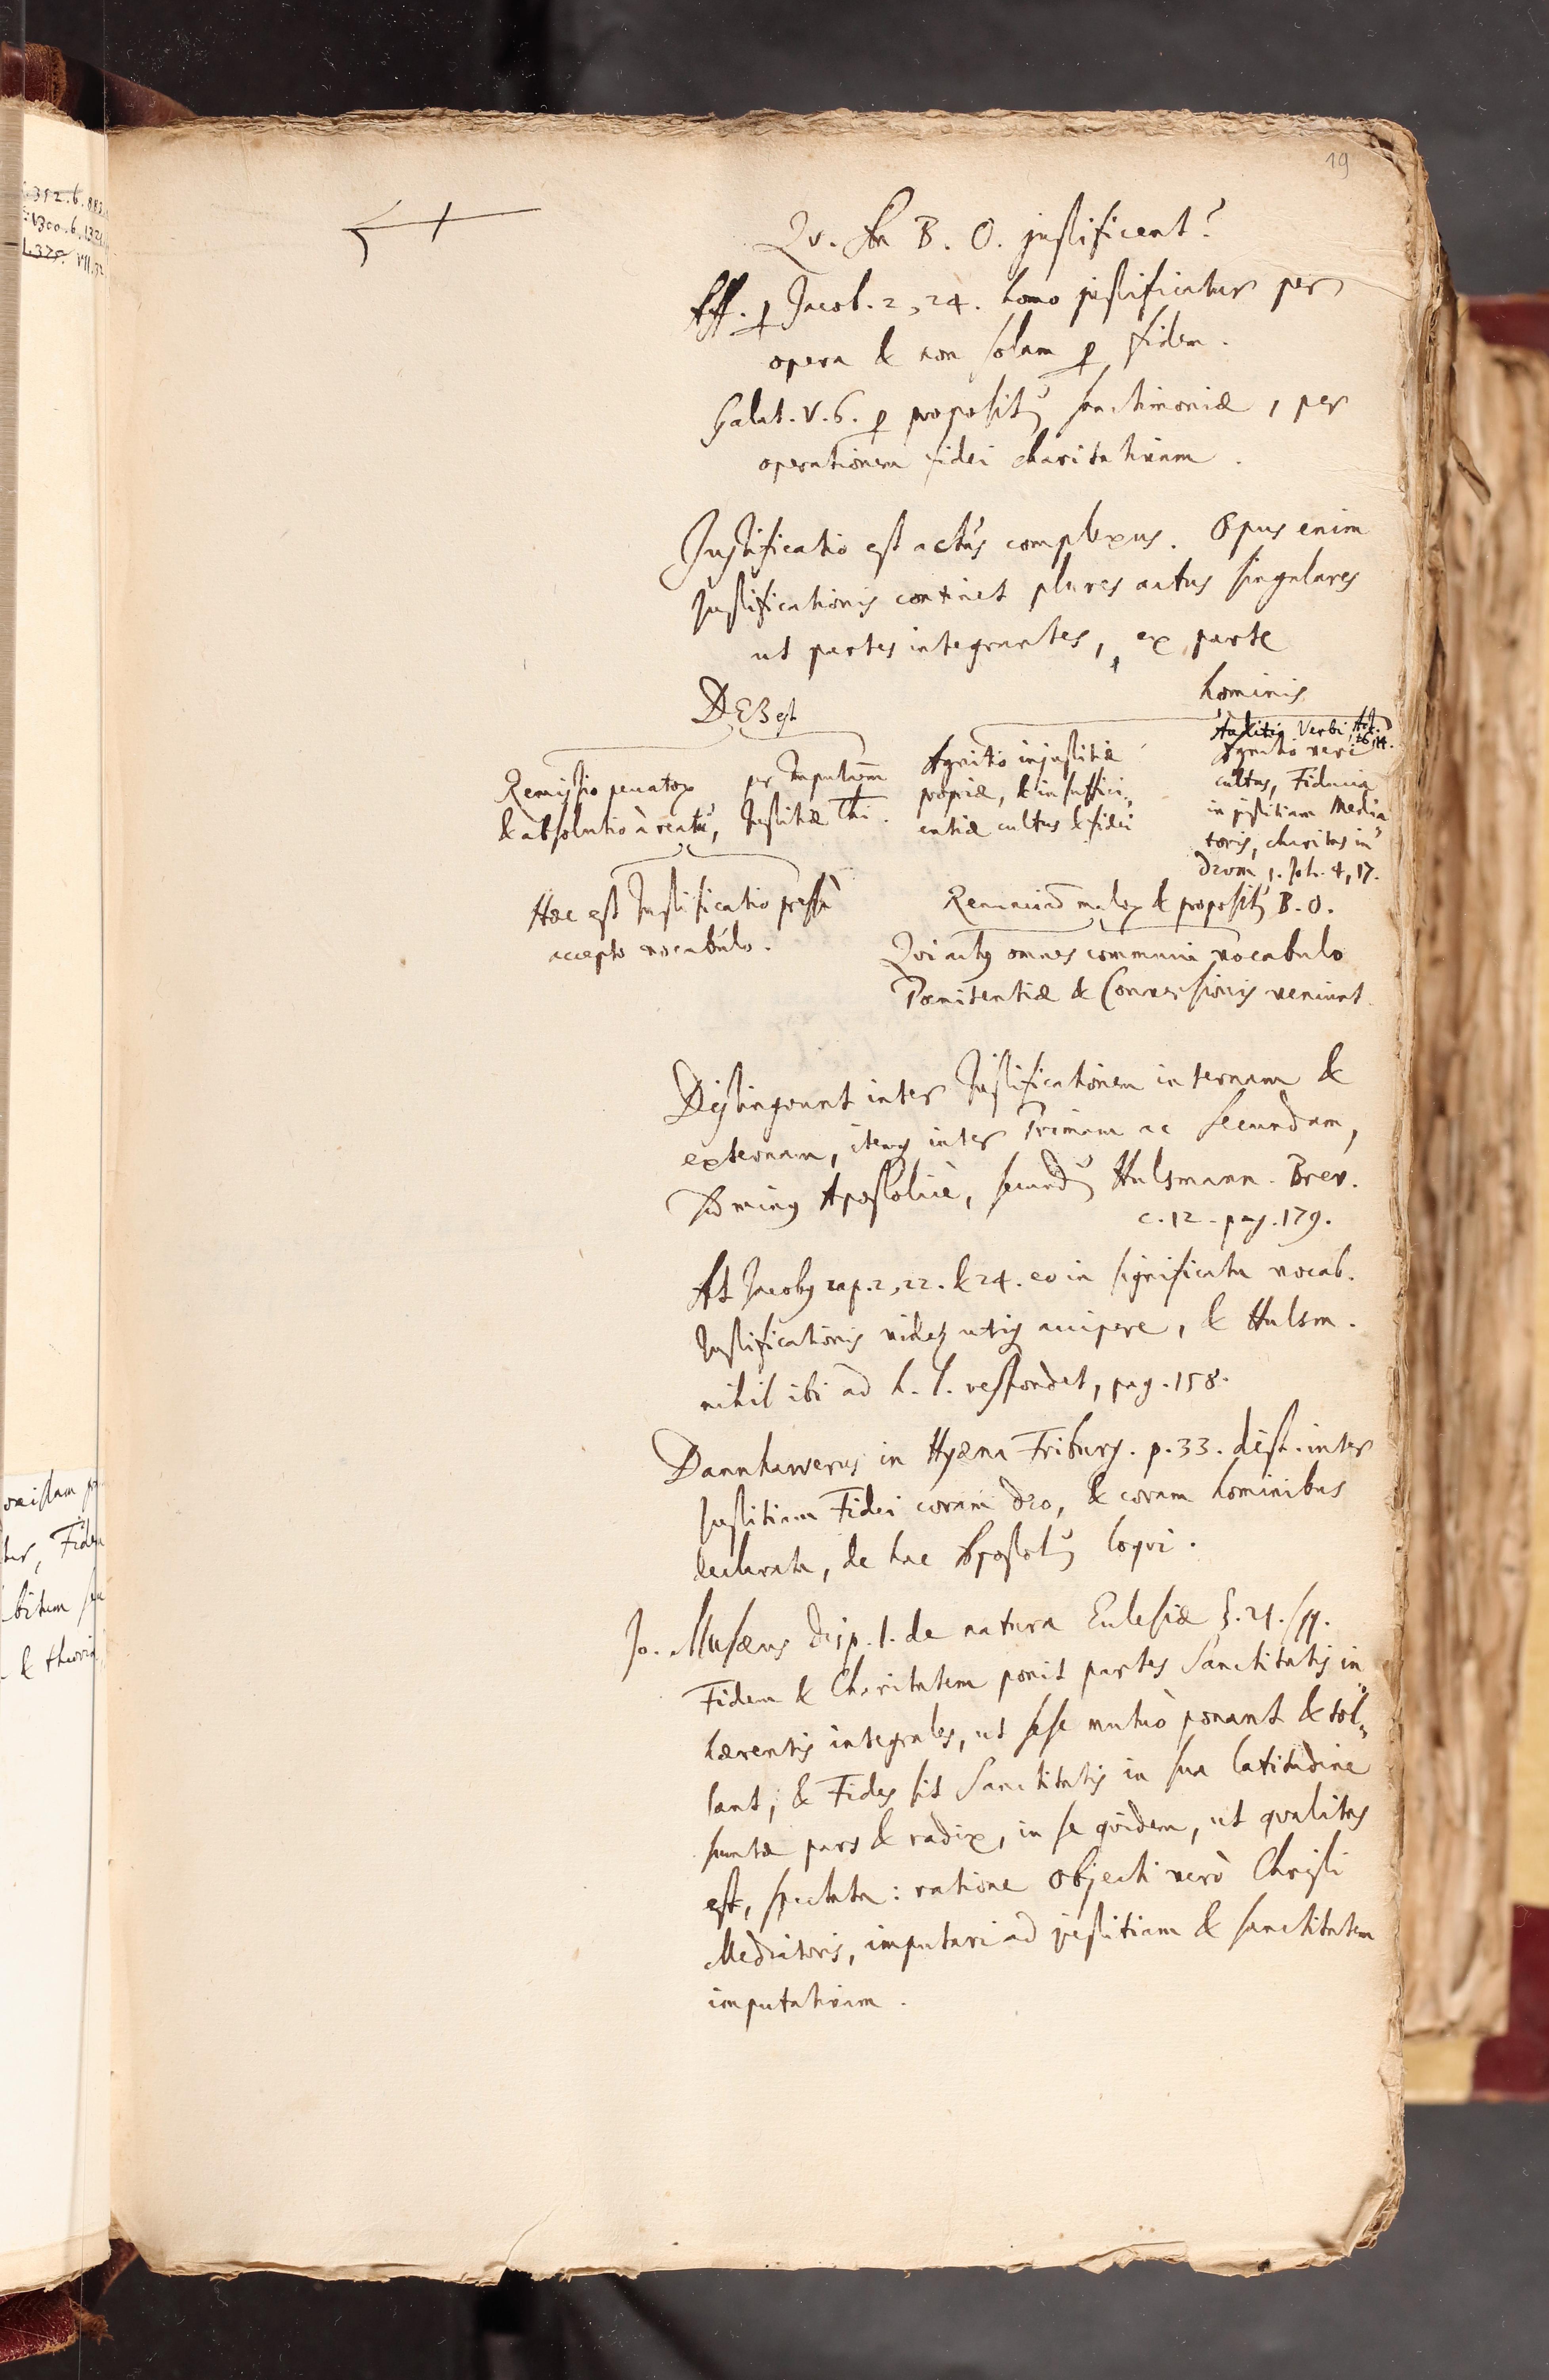 19
Qv. An B. O. justificent?
Aff. ꝑ Jacob. 2, 24. homo justificatur per
opera & non solam ꝑ fidem.
Galat. V. 6. ꝑ propositũ sanctimoniæ, per
operationem fidei charitativam.
Justificatio est actus complexus. Opus enim
Justificationis continet plures actus singulares
ut partes integrantes, ex parte
DEI est
hominis
Remissio peccatoꝝ
& absolutio à reatu,
per Imputõem
Justitiæ Chi.
Hæc est Justificatio pressè
accepto vocabulo.
Agnitio injustitiæ
propriæ, & insuffici-
entiæ cultus & fidei
Auditio Verbi Act. 16, 14.
Agnitio veri
cultus, Fiducia
in justitiam Media
toris, charitas in
Deum 1. Joh. 4, 17.
Renunciatio maloꝝ & propositũ B. O.
Qvi actus omnes communi vocabulo
Pœnitentiæ & Conversionis veniunt.
Distingvunt inter Justificationem internam &
externam, itemq inter Primam ac secundam,
sed minus Apostolicè, secundũ Hulsmann. Brev.
c. 12. pag. 179.
At Jacobus cap. 2, 22. & 24. eo in significatu vocab.
Justificationis videt utiq accipere, & Hulsm.
nihil ibi ad h. l. respondet, pag. 158.
Dannhawerus in Hyæna Friburg. p. 33. dist. inter
Justitiam Fidei coram deo, & coram hominibus
declarata, de hac Apostolũ loqvi.
Jo. Musæus disp. 1. de natura Ecclesiæ §. 21. sqq.
Fidem & Charitatem ponit partes Sanctitatis in-
hærentis integrales, ut sese mutuò ponant & tol-
lant; & Fides sit Sanctitatis in sua latitudine
sumtæ pars & radix, in se qvidem, ut qvalitas
est, spectata: ratione objecti verò Christi
Mediatoris, imputari ad justitiam & sanctitatem
imputativam.